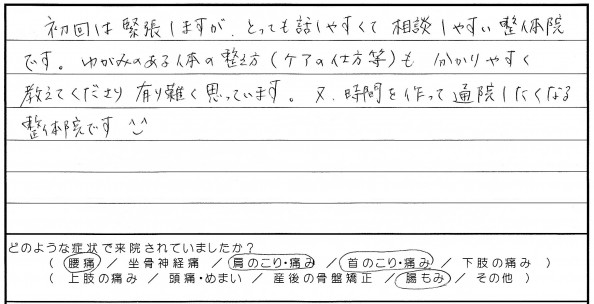 初回は緊張しますが、とっても話しやすくて相談しやすい整体院
です。ゆがみのある体の整え方(ケアの仕方等)も分かりやすく
教えてくださり有り難く思っています。又、時間を作って通院したくなる
整体院です ^^
どのような症状で来院されていましたか?
( 腰痛 / 坐骨神経痛 / 肩のこり・痛み / 首のこり・痛み / 下肢の痛み )
( 上肢の痛み / 頭痛・めまい / 産後の骨盤矯正 / 腸もみ / その他 )